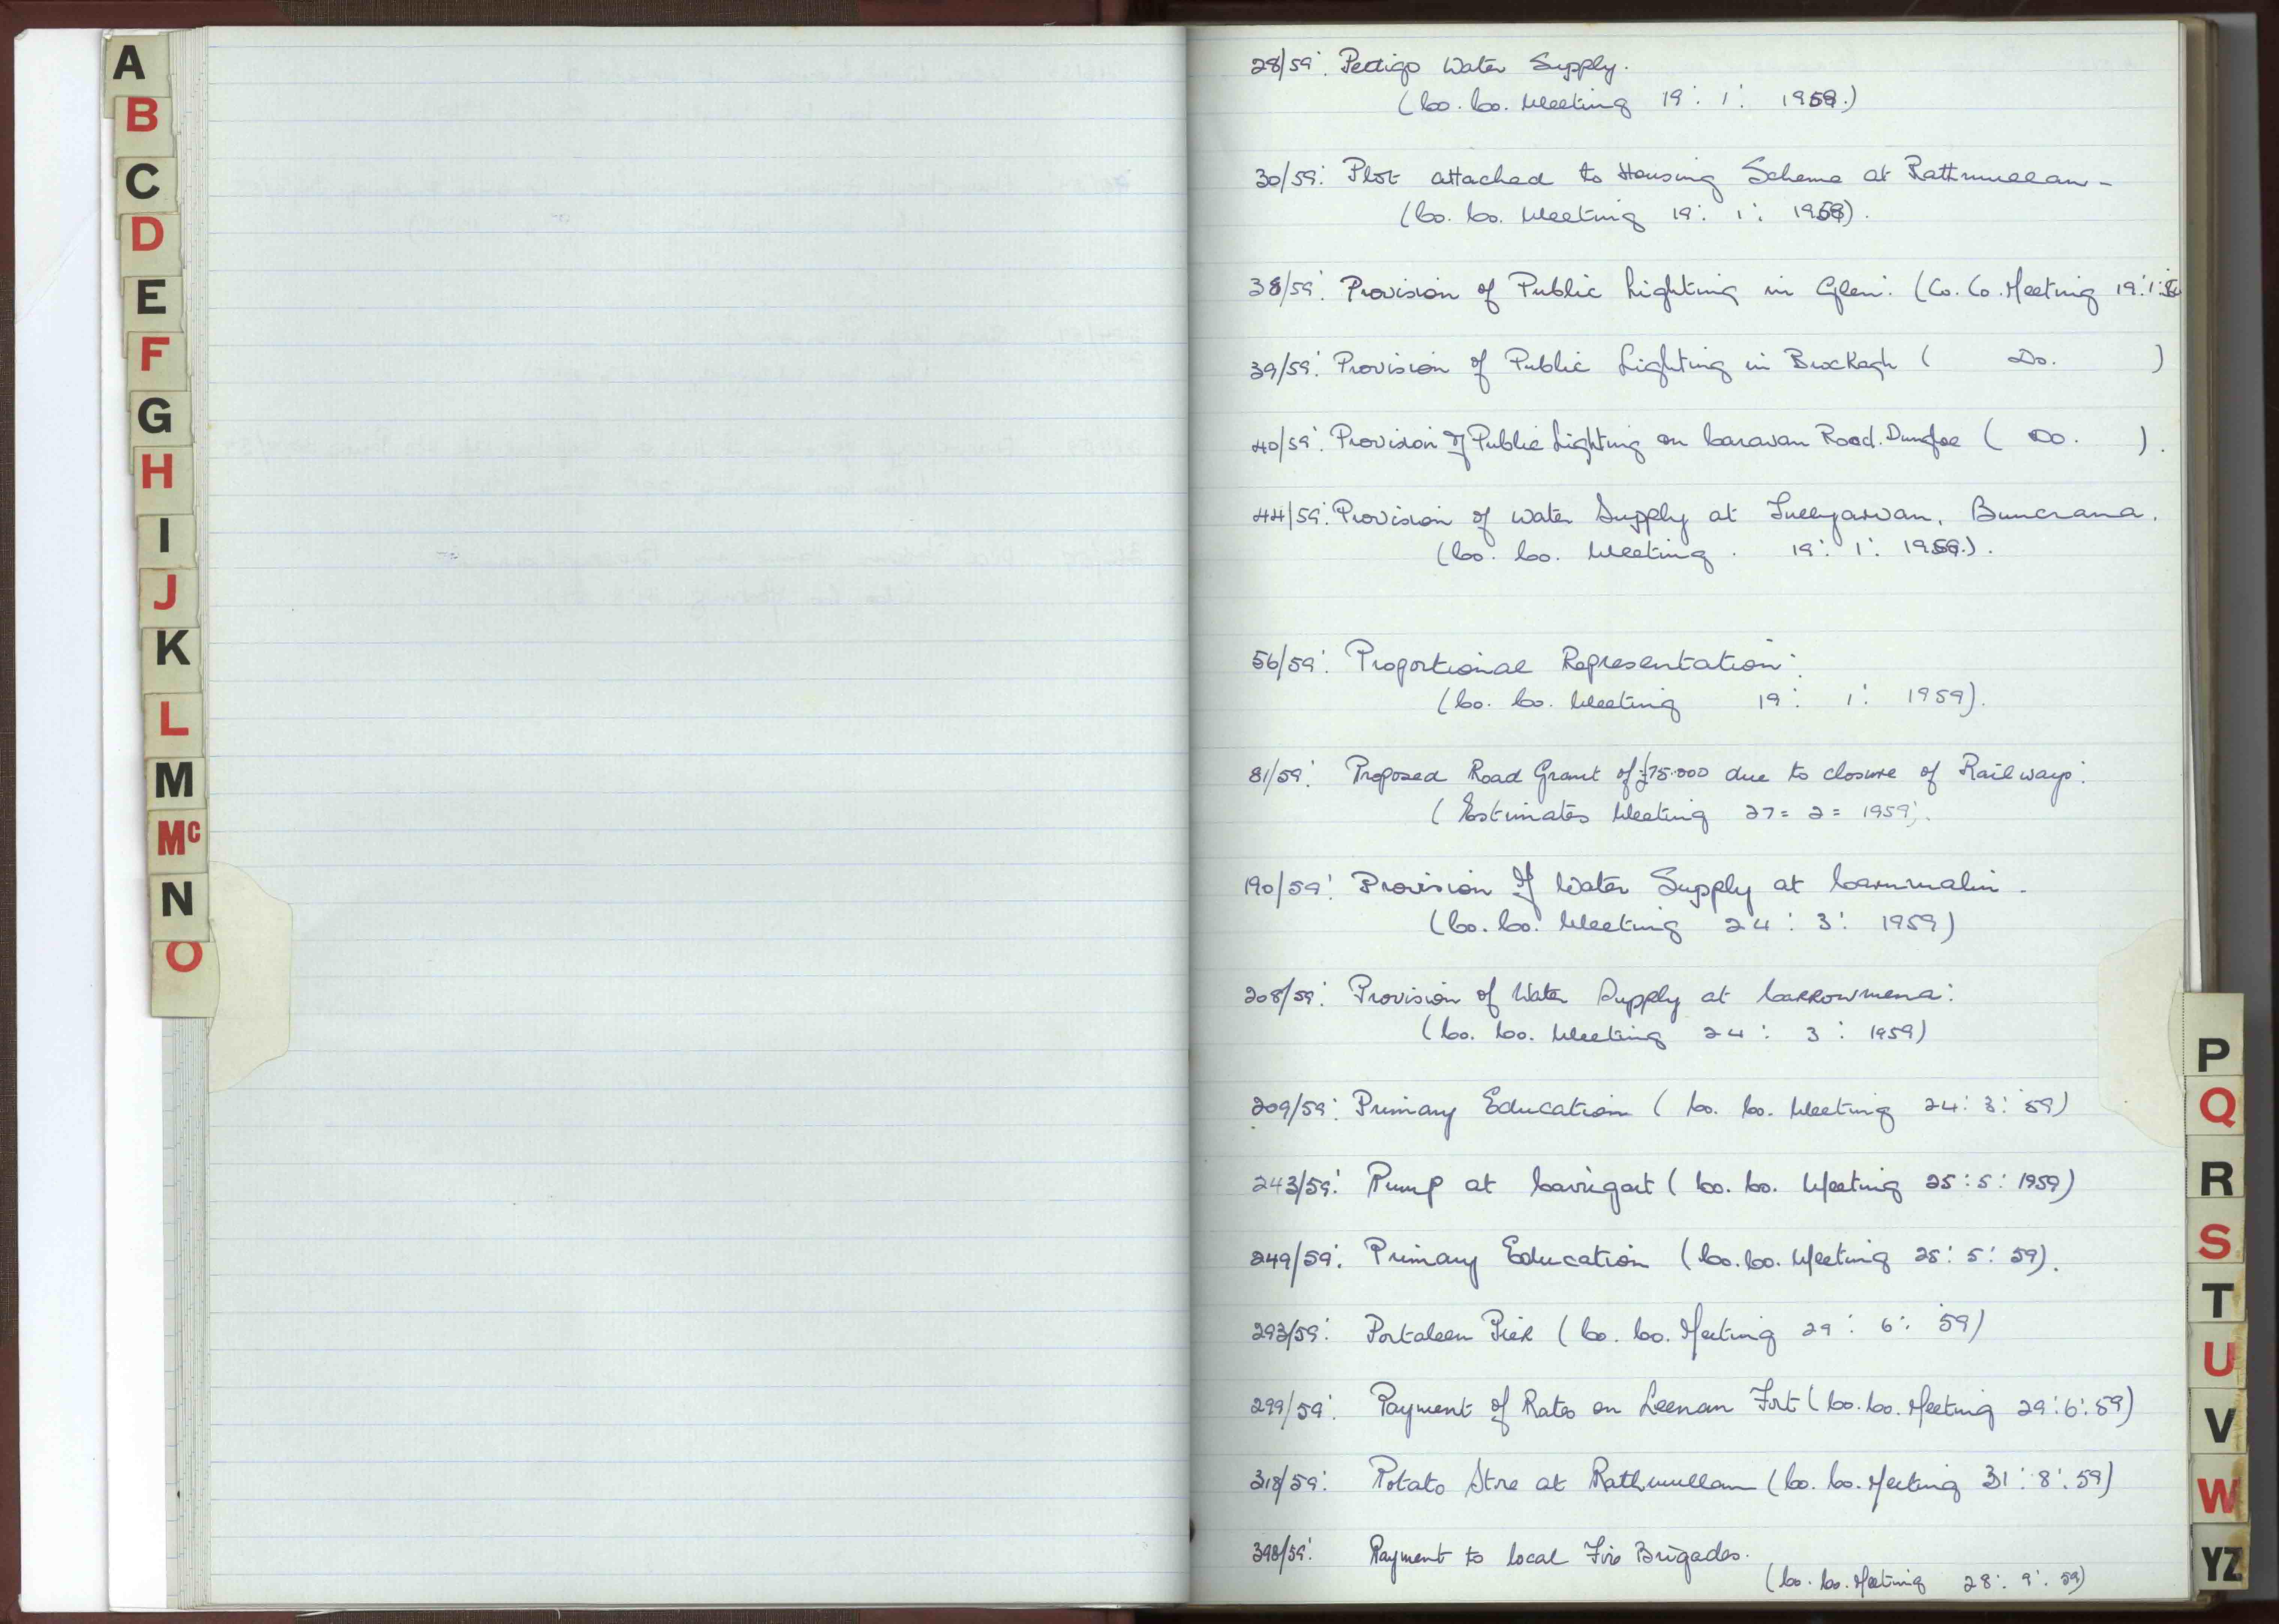 A
B
C
D
E
F
G
H
I
J
K
L
M
Mc
N
O
28/59: Pettigo Water Supply.
(Co. Co. Meeting 19: 1: 1959.)
30/59: Plot attached to Housing Scheme at Rathmullan -
(Co. Co. Meeting 19: 1: 1959).
38/59: Provision of Public Lighting in Glen: (Co. Co. Meeting 19:1:59
39/59: Provision of Public Lighting in Brockagh ( Do. )
40/59: Provision of Public Lighting on Caravan Road. Dungloe ( Do. ).
44/59: Provision of Water Supply at Tullyarvan, Buncrana.
(Co. Co. Meeting. 19: 1: 1959.).
56/59: Proportional Representation:
(Co. Co. Meeting 19: 1: 1959).
81/59: Proposed Road Grant of £75.000 due to closure of Railways:
(Estimates Meeting 27= 2= 1959).
190/59: Provision of Water Supply at Carnmalin.
(Co. Co. Meeting 24: 3: 1959)
208/59: Provision of Water Supply at Carrowmena:
(Co. Co. Meeting 24: 3: 1959)
209/59: Primary Education (Co. Co. Meeting 24: 3: 59)
243/59: Pump at Carrigart (Co. Co. Meeting 25:5: 1959)
249/59: Primary Education (Co. Co. Meeting 25: 5: 59).
293/59: Portaleen Pier (Co. Co. Meeting 29: 6: 59)
299/59: Payment of Rates on Leenan Fort (Co. Co. Meeting 29:6:59)
318/59: Potato Store at Rathmullan (Co. Co. Meeting 31:8:59)
398/59: Payment to local Fire Brigades.
(Co. Co. Meeting 28: 9: 59)
P
Q
R
S
T
U
V
W
YZ